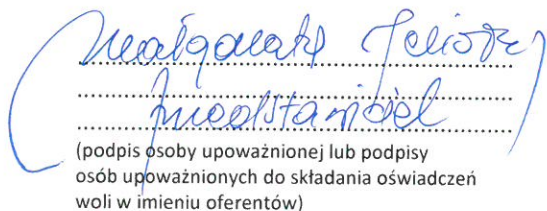 Małgorzata
przedstawiciel
(podpis osoby upoważnionej lub podpisy
osób upoważnionych do składania oświadczeń
woli w imieniu oferentów)